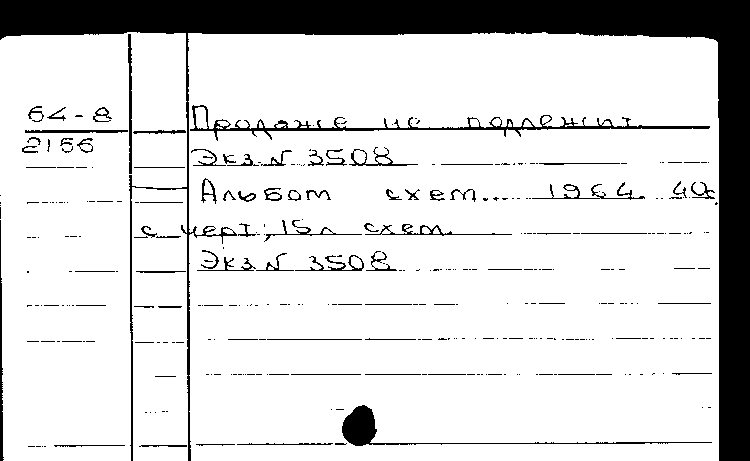 64-8
2156
Продаже не подлежит
Экз N 3508
Альбом схем... 1964. 40с.
с черт; 15л схем.
Экз N 3508